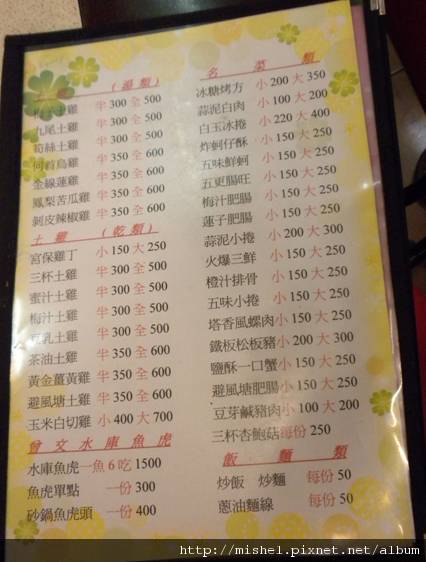 (湯類)
土雞 半300 全500
九尾土雞 半300 全500
筍絲土雞 半300 全500
何首烏雞 半350 全600
金線蓮雞 半350 全600
鳳梨苦瓜雞 半350 全600
剝皮辣椒雞 半350 全600
土雞 (乾類)
宮保雞丁 小150 大250
三杯土雞 半300 全500
蜜汁土雞 半300 全500
梅汁土雞 半300 全500
豆乳土雞 半300 全500
茶油土雞 半350 全600
黃金薑黃雞 半350 全600
避風塘土雞 半350 全600
玉米白切雞 小400 大700
曾文水庫魚虎
水庫魚虎一魚6吃1500
魚虎單點 一份300
砂鍋魚虎頭 一份400
名菜類
冰糖烤方 小200 大350
蒜泥白肉 小100 大200
白玉冰捲 小220 大400
炸蚵仔酥 小150 大250
五味鮮蚵 小150 大250
五更腸旺 小150 大250
梅汁肥腸 小150 大250
蓮子肥腸 小150 大250
蒜泥小捲 小200 大300
火爆三鮮 小150 大250
橙汁排骨 小150 大250
五味小捲 小200 大300
塔香風螺肉 小150 大250
鐵板松板豬 小200 大300
鹽酥一口蟹 小150 大250
避風塘肥腸 小150 大250
豆芽鹹豬肉 小100 大200
三杯杏鮑菇 每份250
飯麵類
炒飯 炒麵 每份50
蔥油麵線 每份50
http://mishel.pixnet.net/album